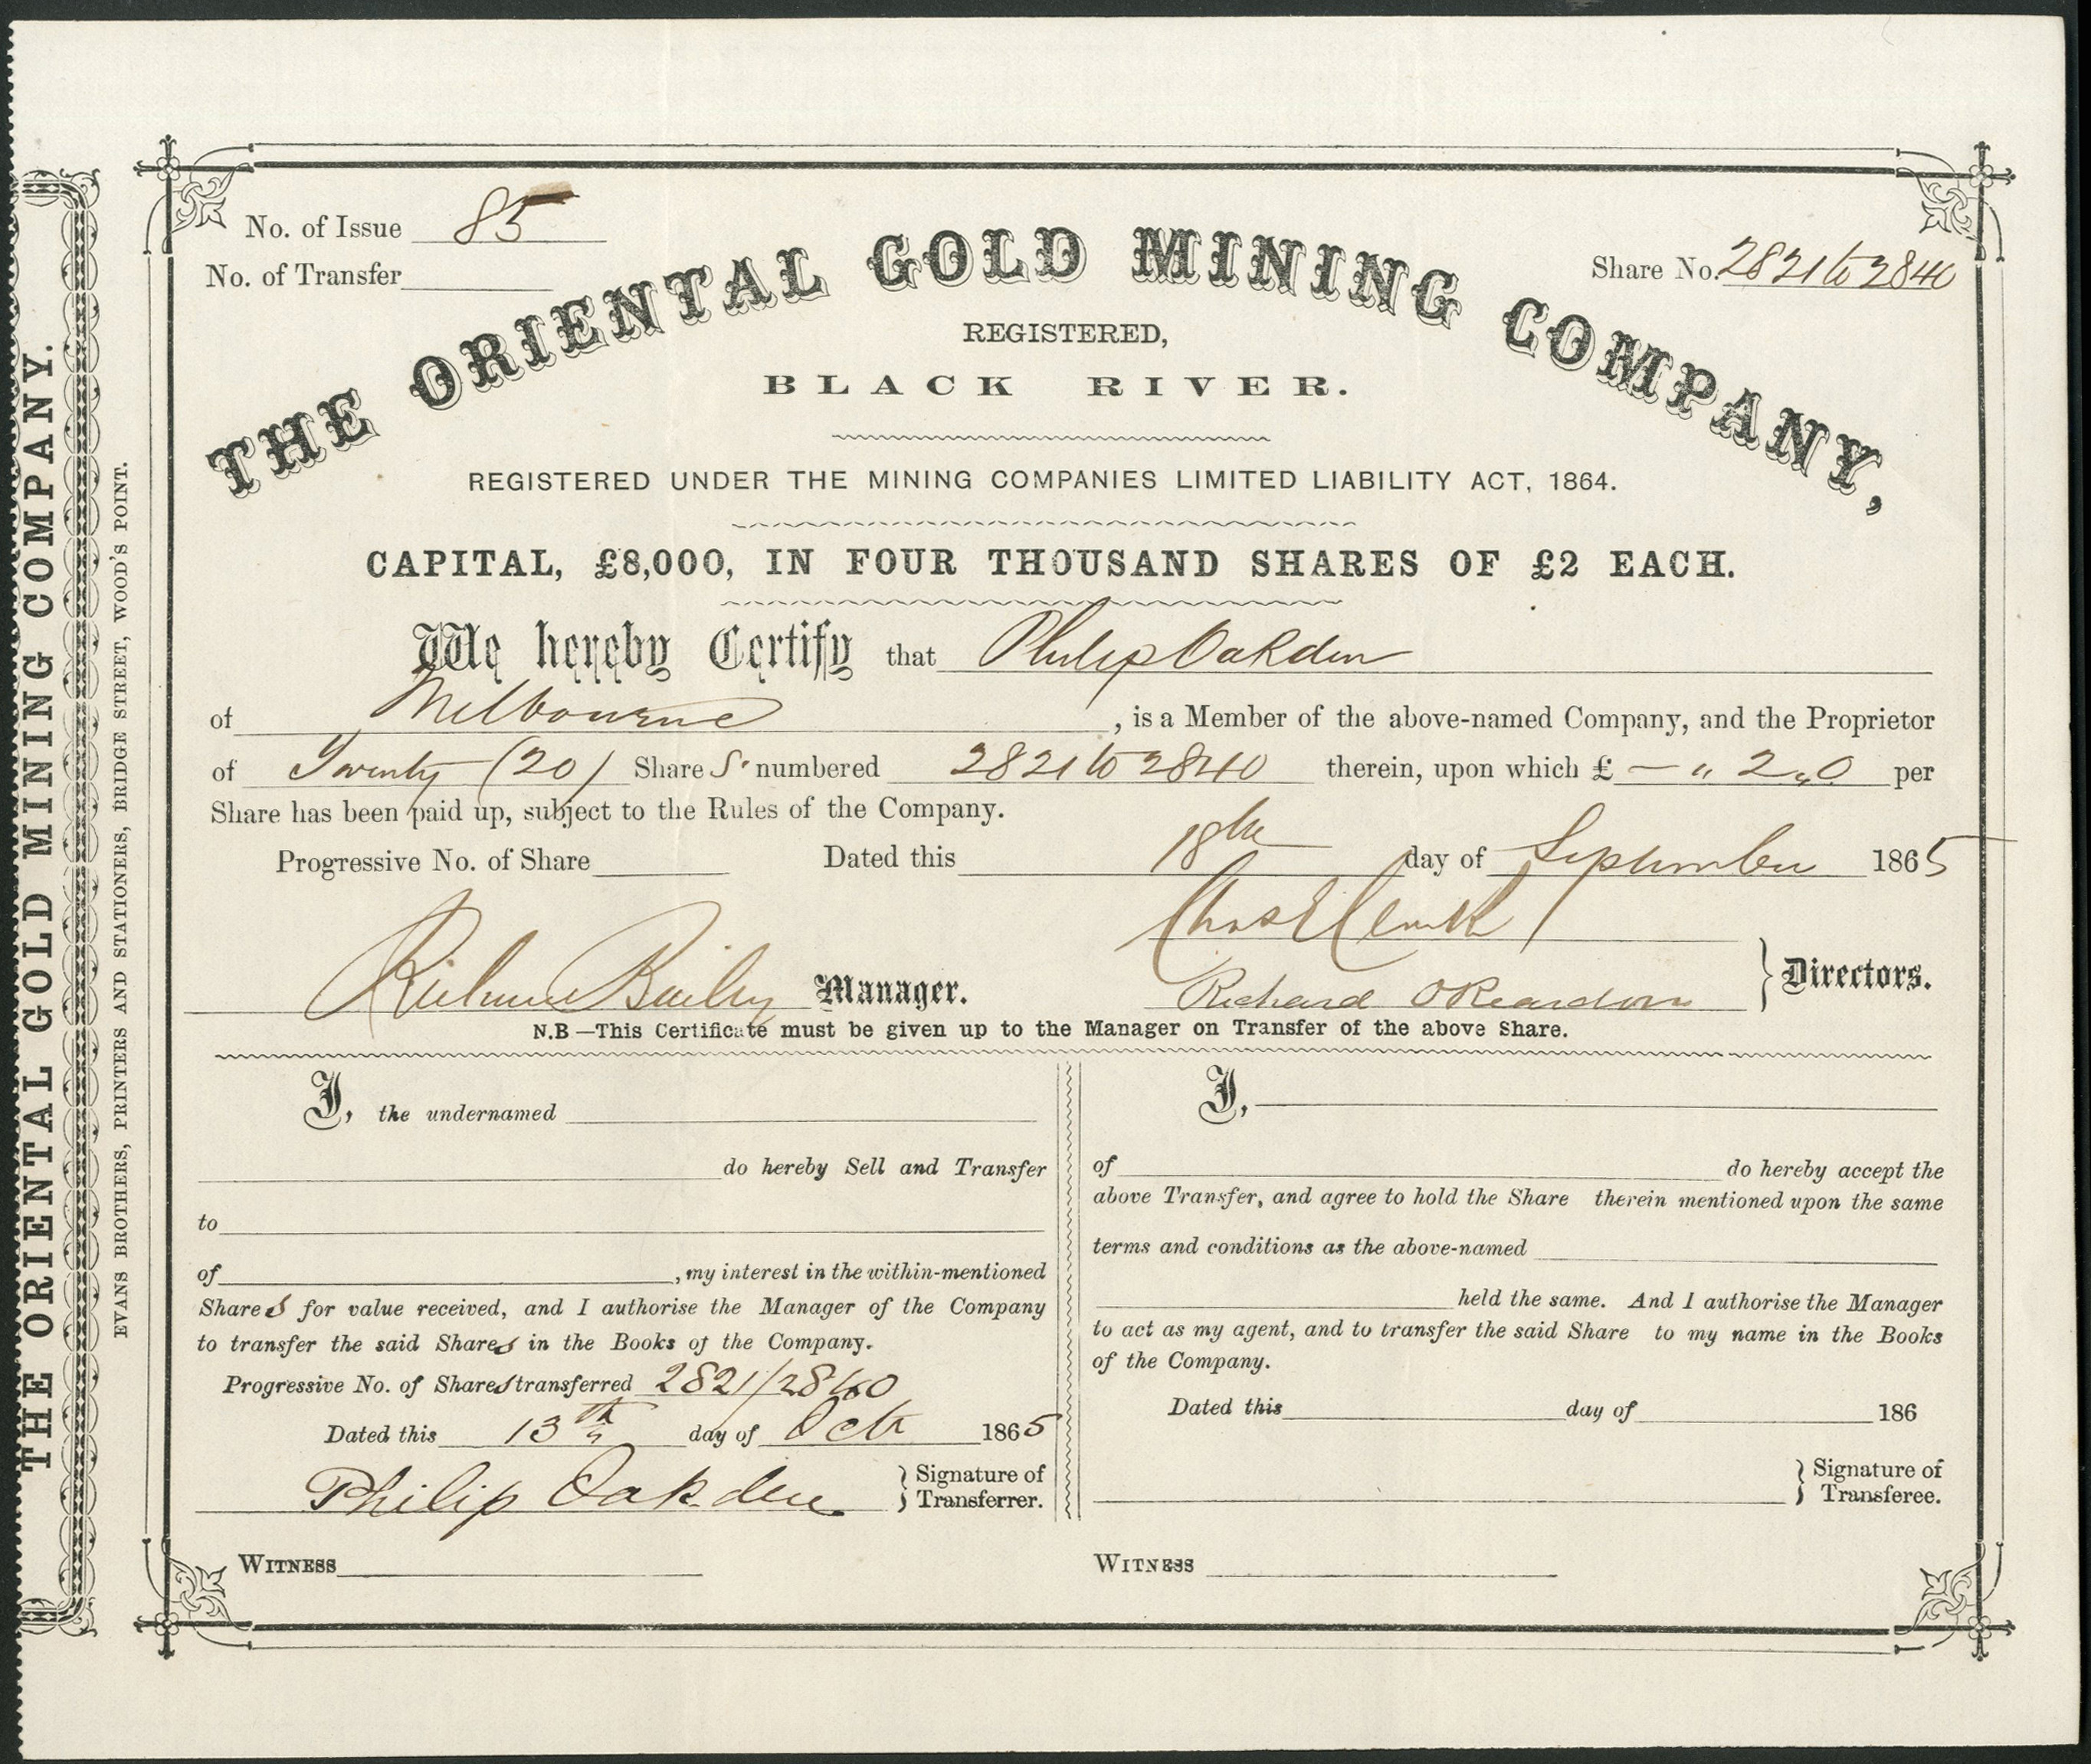 No. of Issue 85
No. of Transfer
Share No. 2821 to 2840
THE ORIENTAL GOLD MINING COMPANY,
REGISTERED,
BLACK RIVER.
REGISTERED UNDER THE MINING COMPANIES LIMITED LIABILITY ACT, 1864.
CAPITAL, £8,000, IN FOUR THOUSAND SHARES OF £2 EACH.
We hereby Certify that Philip Oakden
of Melbourne, is a Member of the above-named Company, and the Proprietor
of Twenty (20) Share s. numbered 2821 to 2840 therein, upon which £ — " 2 " 0 per
Share has been paid up, subject to the Rules of the Company.
Progressive No. of Share Dated this 18th day of September 1865
Bailey Manager.
Richard O'Reardon Directors.
N.B—This Certificate must be given up to the Manager on Transfer of the above Share.
I, the undernamed
do hereby Sell and Transfer
to
of , my interest in the within-mentioned
Shares for value received, and I authorise the Manager of the Company
to transfer the said Shares in the Books of the Company.
Progressive No. of Shares transferred 2821/2840
Dated this 13th day of Octr 1865
Philip Oakden Signature of Transferrer.
WITNESS
I,
of do hereby accept the
above Transfer, and agree to hold the Share therein mentioned upon the same
terms and conditions as the above-named
held the same. And I authorise the Manager
to act as my agent, and to transfer the said Share to my name in the Books
of the Company.
Dated this day of 186
Signature of Transferee.
WITNESS
THE ORIENTAL GOLD MINING COMPANY.
EVANS BROTHERS, PRINTERS AND STATIONERS, BRIDGE STREET, WOOD'S POINT.